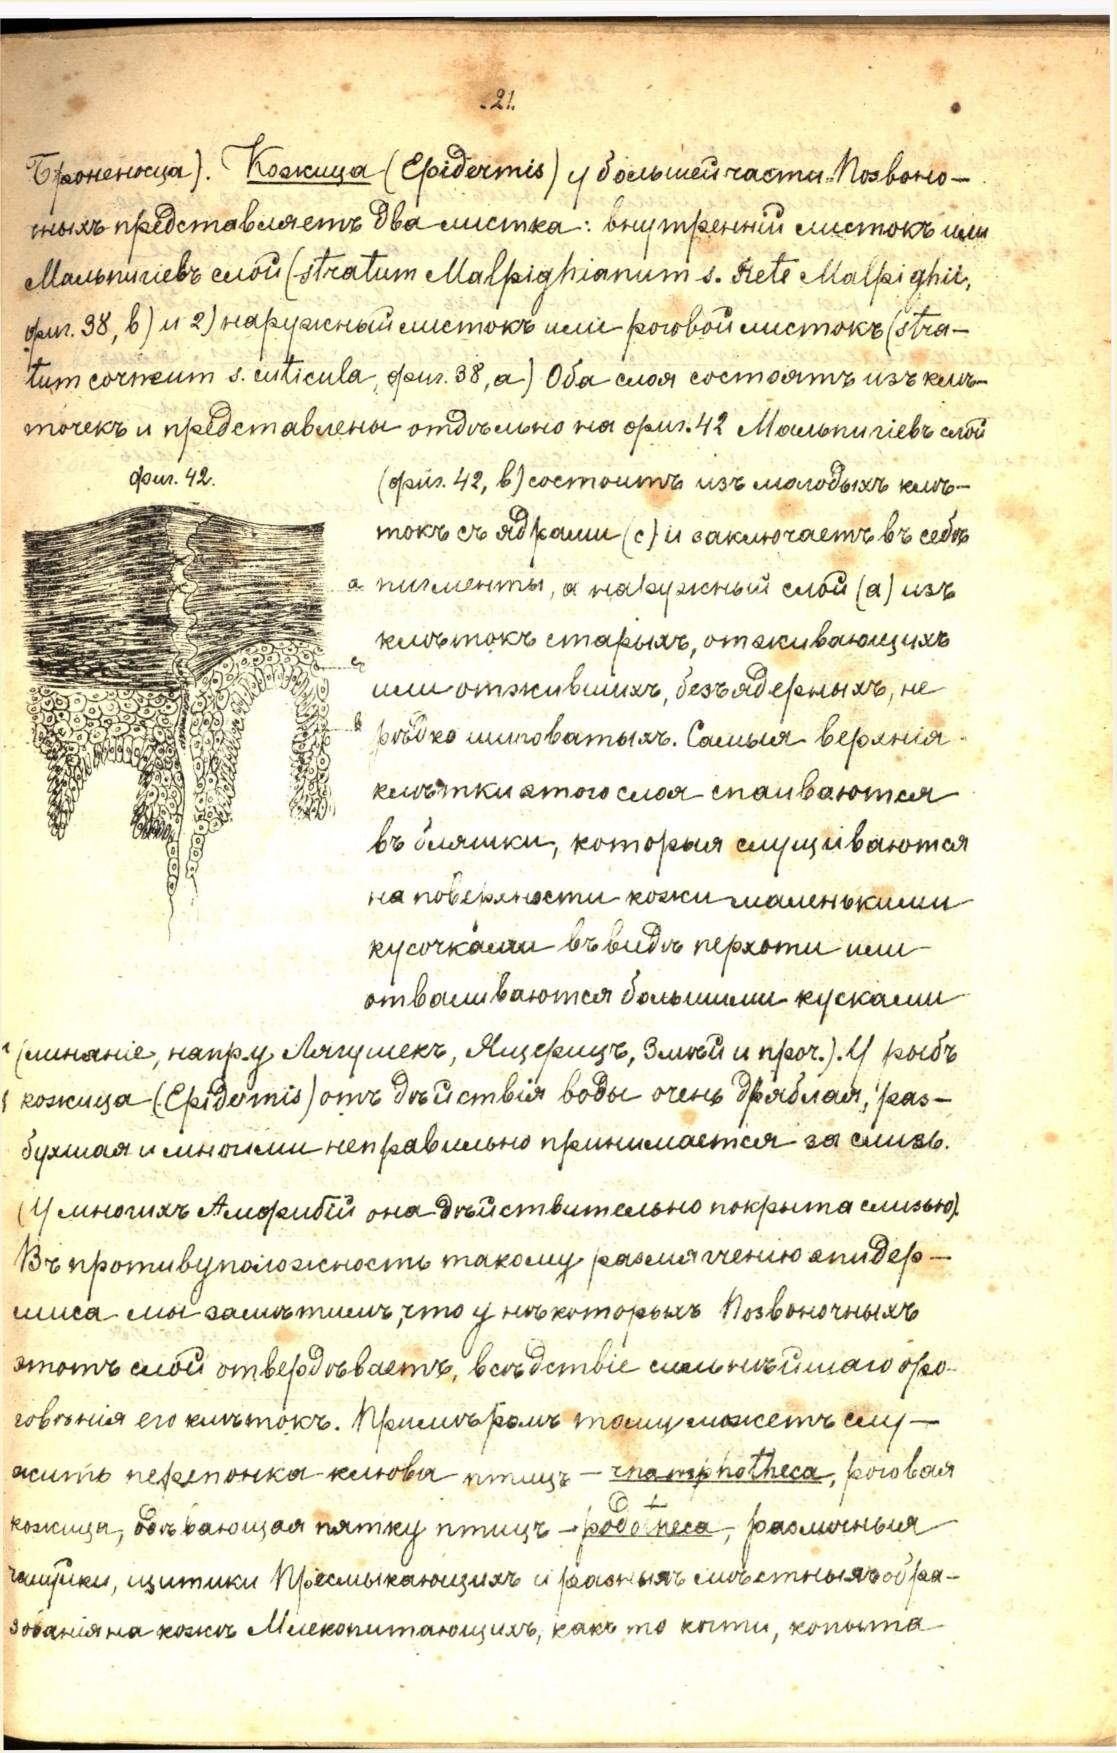 .21.
Броненосца). Кожица (Epidermis) у большей части Позвоно-
чныхъ представляетъ два листка: внутренній листокъ или
Мальпигіевъ слой (stratum Malpighianum s. Rete Malpighii,
фиг. 38, в) и 2) наружный листокъ или роговой листокъ (stra-
tum corneum s. cuticula, фиг. 38, а) Оба слоя состоятъ изъ клѣ-
точекъ и представлены отдѣльно на фиг. 42 Мальпигіевъ слой
фиг. 42.
(фиг. 42, в) состоитъ изъ молодыхъ клѣ-
токъ съ ядрами (с) и заключаетъ въ себѣ
а
пигменты, а наружный слой (а) изъ
клѣтокъ старыхъ, отживающихъ
с
или отжившихъ, безъядерныхъ, не
в
рѣдко шиповатыхъ. Самыя верхнія
клѣтки этого слоя спаиваются
въ бляшки, которыя слущиваются
на поверхности кожи маленькими
кусочками въ видѣ перхоти или
отваливаются большими кусками
(линяніе, напр. у Лягушекъ, Ящерицъ, Змѣй и проч.). У рыбъ
кожица (Epidermis) отъ дѣйствія воды очень дряблая, раз-
бухшая и многими неправильно принимается за слизь.
(У многихъ Амфибій она дѣйствительно покрыта слизью).
Въ противуположность такому размягченію эпидер-
миса мы замѣтимъ, что у нѣкоторыхъ Позвоночныхъ
этотъ слой отвердѣваетъ, вслѣдствіе сильнѣйшаго оро-
говѣнія его клѣтокъ. Примѣромъ тому можетъ слу-
жить перепонка клюва птицъ - rhamphotheca, роговая
кожица, одѣвающая пятку птицъ - podotheca, различныя
чешуйки, щитики Пресмыкающихъ и разныя мѣстныя обра-
зованія на кожѣ Млекопитающихъ, какъ то когти, копыта